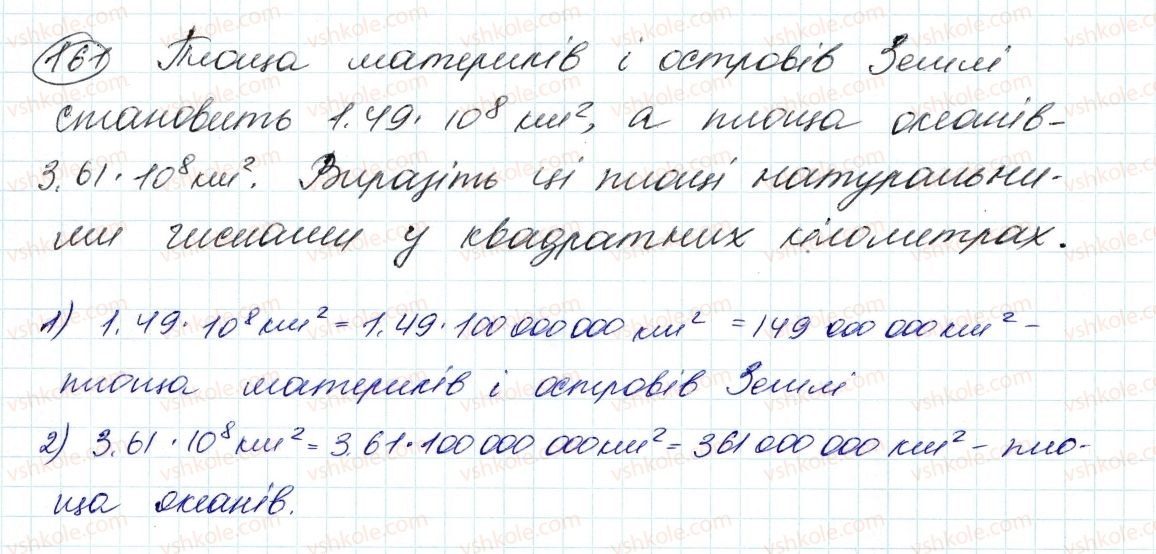 161 Площа материків і островів Землі
становить 1,49 · 10⁸ км², а площа океанів –
3,61 · 10⁸ км². Виразіть ці площі натуральни-
ми числами у квадратних кілометрах.
1) 1,49 · 10⁸ км² = 1,49 · 100 000 000 км² = 149 000 000 км² –
площа материків і островів Землі
2) 3,61 · 10⁸ км² = 3,61 · 100 000 000 км² = 361 000 000 км² – пло-
ща океанів.